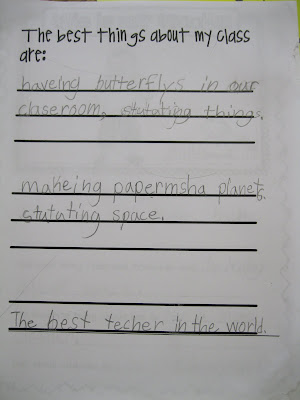 The best things about my class
are:
haveing butterflys in our
classroom, stutating things.
makeing papermsha planets.
stutating space.
The best techer in the world.